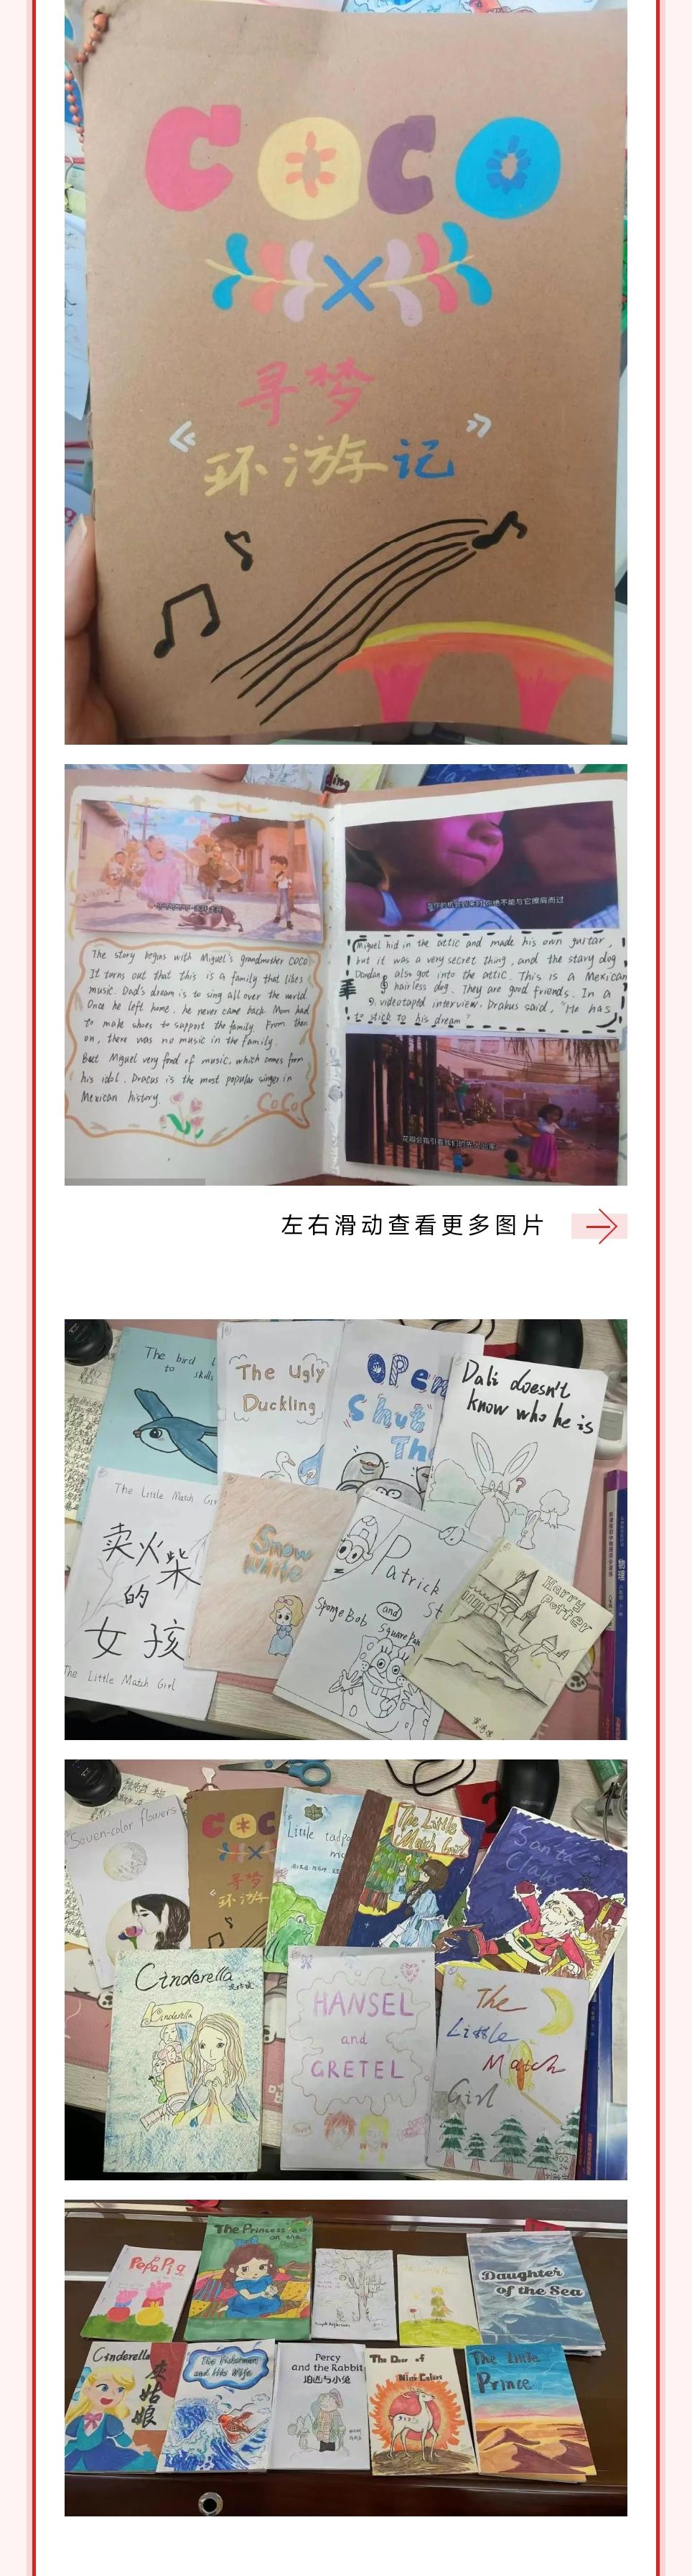 COCO
寻梦
《环游记》
The story begins with Miguel's grandmother COCO
It turns out that this is a family that likes
music. Dad's dream is to sing all over the world.
Once he left home, he never came back. Mom had
to make shoes to support the family. From then
on, there was no music in the family.
But Miguel very fond of music, which comes from
his idol. Dracus is the most popular singer in
Mexican history.
CoCo
你不能与它擦肩而过
Miguel hid in the attic and made his own guitar,
but it was a very secret thing, and the stray dog
Dandan also got into the attic. This is a Mexican
hairless dog. They are good friends. In a
videotaped interview, Drakus said, "He has
to stick to his dream"
花瓣会指引着我们的亲人回家
左右滑动查看更多图片
The bird
to skills
The Ugly
Duckling
Open
Shut
The
Dali doesn't
know who he is
The Little Match Gir
卖火柴
的
女孩
The Little Match Girl
Snow
White
Patrick
St
SpongeBob and Square Pan
Harry
Potter
物理
Seven-color flowers
COC
寻梦
环游
Little tadpo
The Little
Match Girl
Santa
Claus
Cinderella
Cinderella
HANSEL
and
GRETEL
The
Little
Match
Girl
PepaPig
The Princess
on the
Daughter
of the Sea
Cinderella
灰姑娘
The Fisherman
and His Wife
Percy
and the Rabbit
珀西与小兔
The Deer of
Nine Colors
The Little
Prince